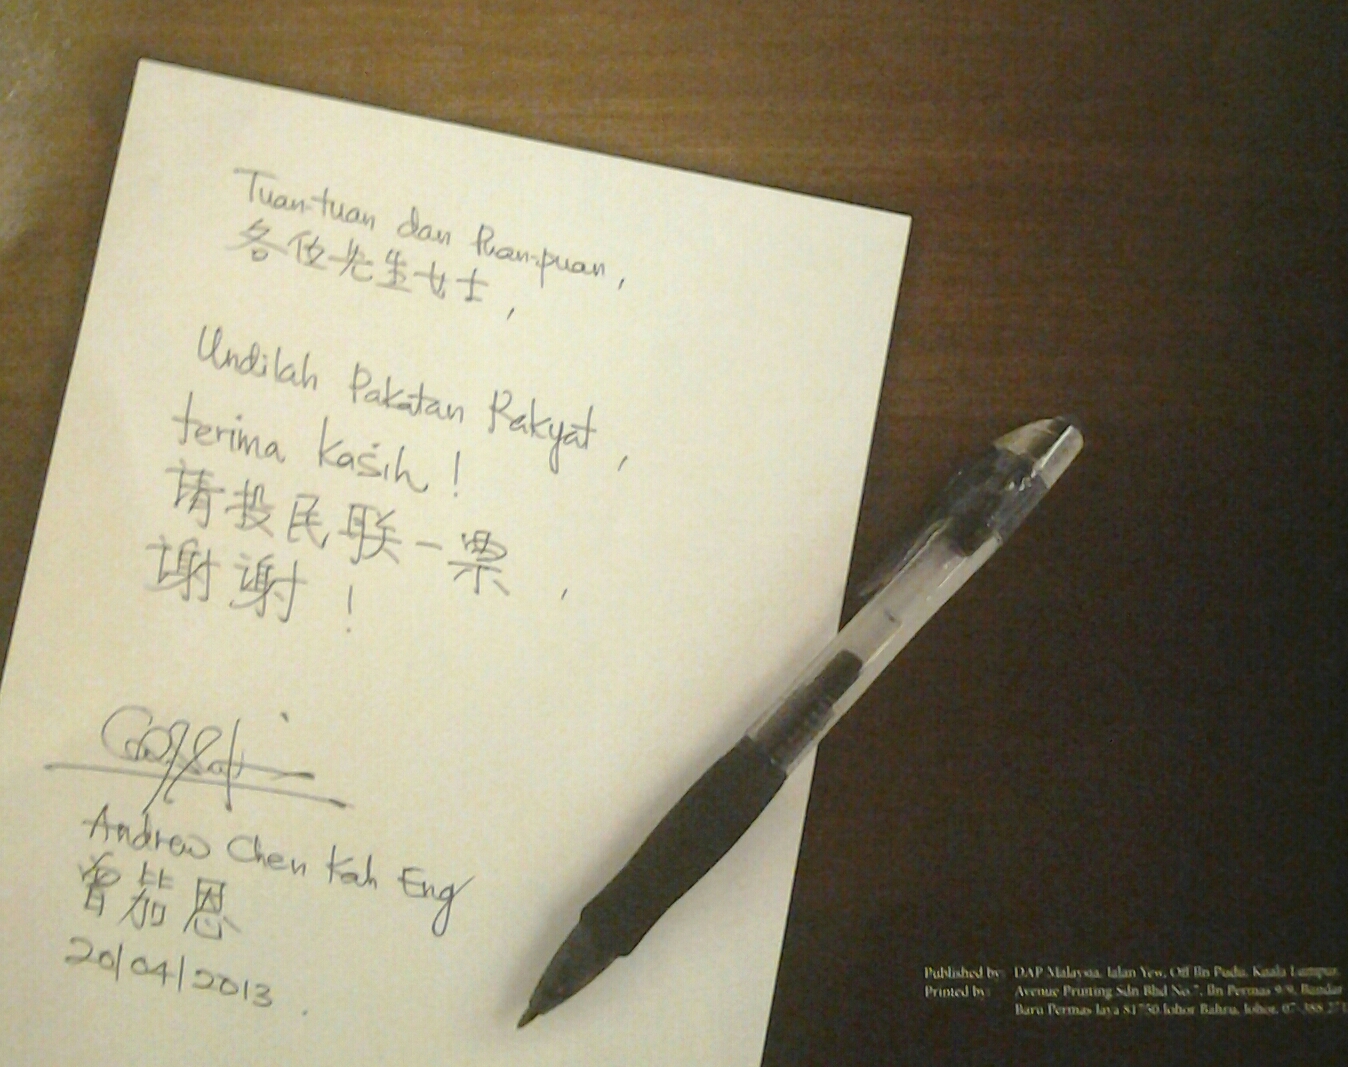 Tuan-tuan dan Puan-puan,
各位先生女士,
Undilah Pakatan Rakyat,
terima kasih!
请投民联一票,
谢谢!
Andrew Chen Kah Eng
曾笳恩
20/04/2013.
Published by: DAP Malaysia, Jalan Yew, Off Jln Pudu, Kuala Lumpur.
Printed by: Avenue Printing Sdn Bhd No.7, Jln Permas 9/9, Bandar
Baru Permas Jaya 81750 Johor Bahru, Johor. 07-388